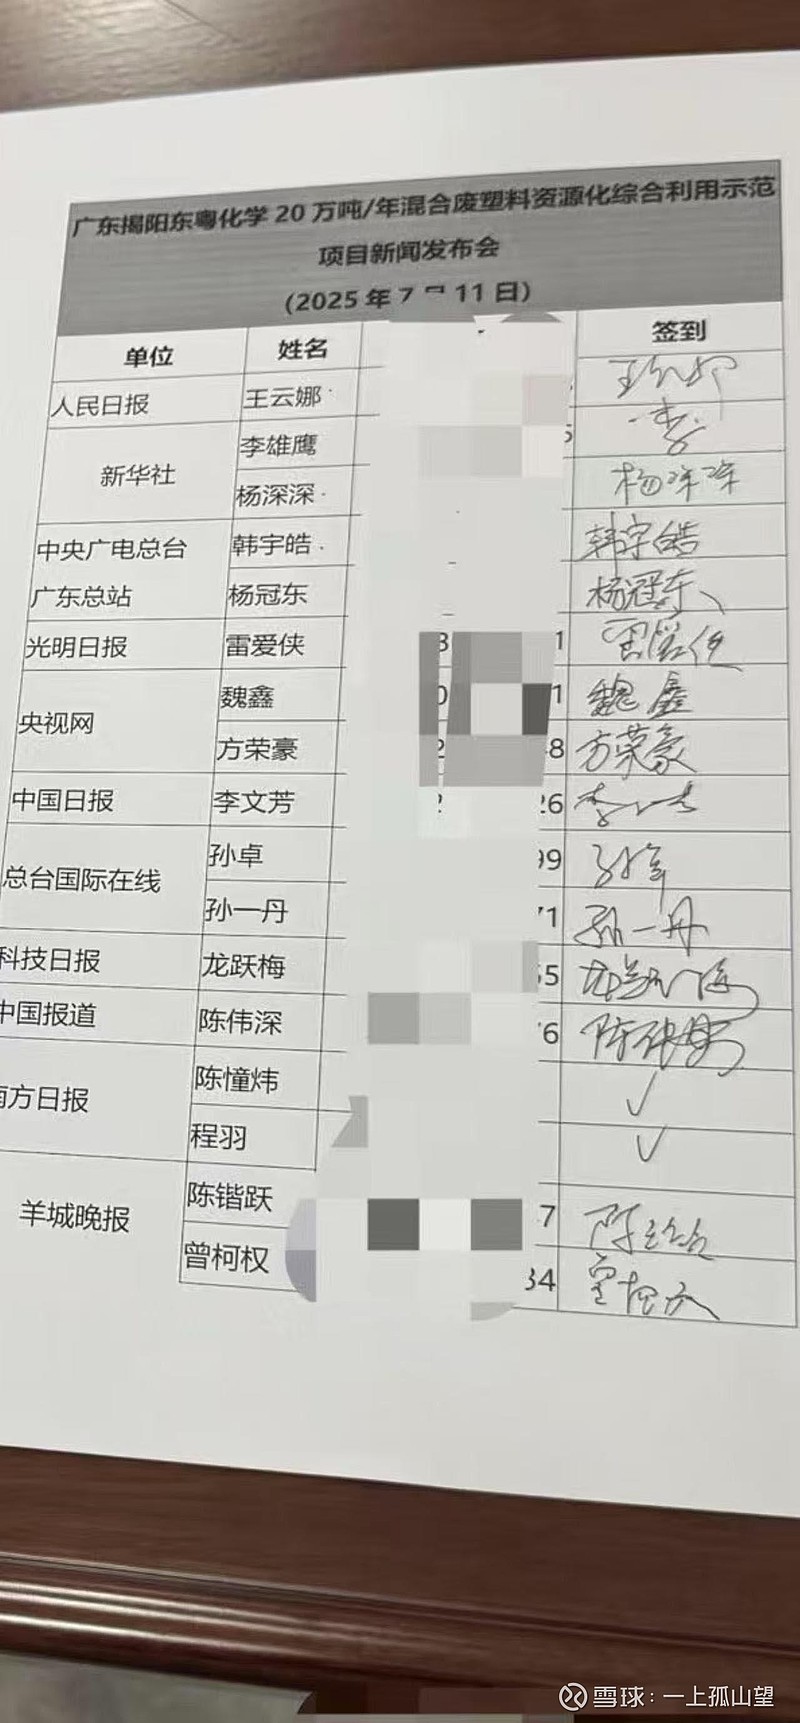 广东揭阳东粤化学20万吨/年混合废塑料资源化综合利用示范
项目新闻发布会
(2025年7月11日)
单位 姓名 签到
人民日报 王云娜
新华社 李雄鹰 李
杨深深 杨深深
中央广电总台 韩宇皓 韩宇皓
广东总站 杨冠东 杨冠东
光明日报 雷爱侠 3 1
央视网 魏鑫 0 1 魏鑫
方荣豪 2 8 方荣豪
中国日报 李文芳 2 26
总台国际在线 孙卓 99
孙一丹 71 孙一丹
科技日报 龙跃梅 55
中国报道 陈伟深 6 陈伟深
南方日报 陈憧炜 ✓
程羽 ✓
羊城晚报 陈锴跃 7
曾柯权 34
雪球:一上孤山望